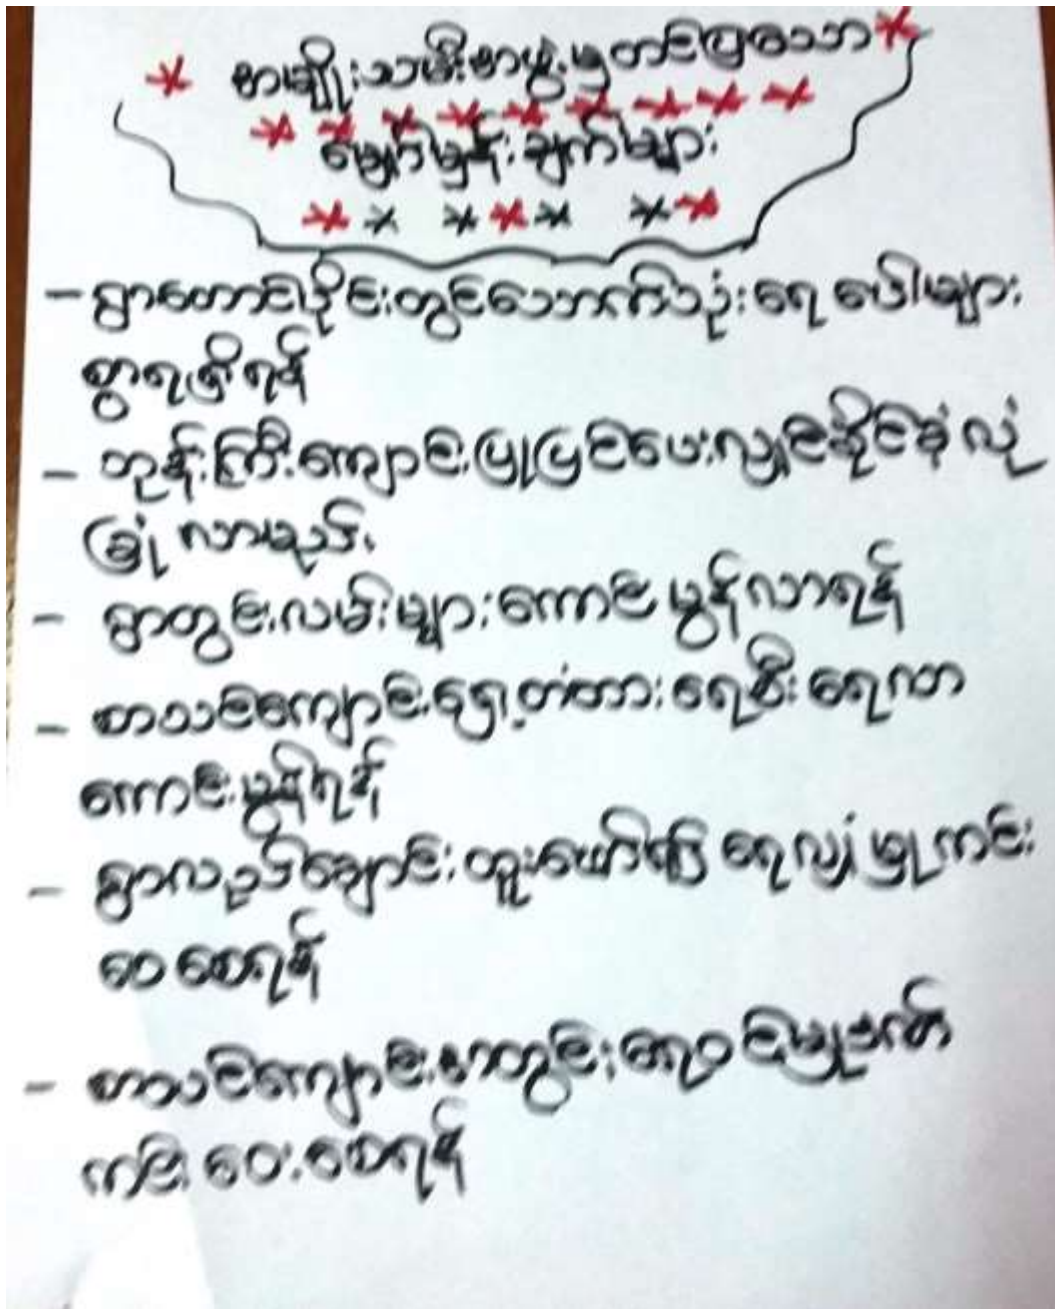 အမျိုးသမီးအဖွဲ့မှတင်ပြသော
မျှော်မှန်းချက်များ
- ရွာတောင်ပိုင်းတွင်သောက်သုံးရေ ပေါများ
စွာရရှိရန်
- ဘုန်းကြီးကျောင်းပြုပြင်ပေးလျှင်ခိုင်ခံ့လုံ
ခြုံ လာမည်။
- ရွာတွင်းလမ်းများကောင်းမွန်လာရန်
- စာသင်ကျောင်းရှေ့တံတားရေစီးရေလာ
ကောင်းမွန်ရန်
- ရွာလည်ချောင်းတူးဖော်၍ ရေလျှံမှုကင်း
ဝေးစေရန်
- စာသင်ကျောင်းအတွင်းရေဝင်မှုဒဏ်
ကင်းဝေးစေရန်